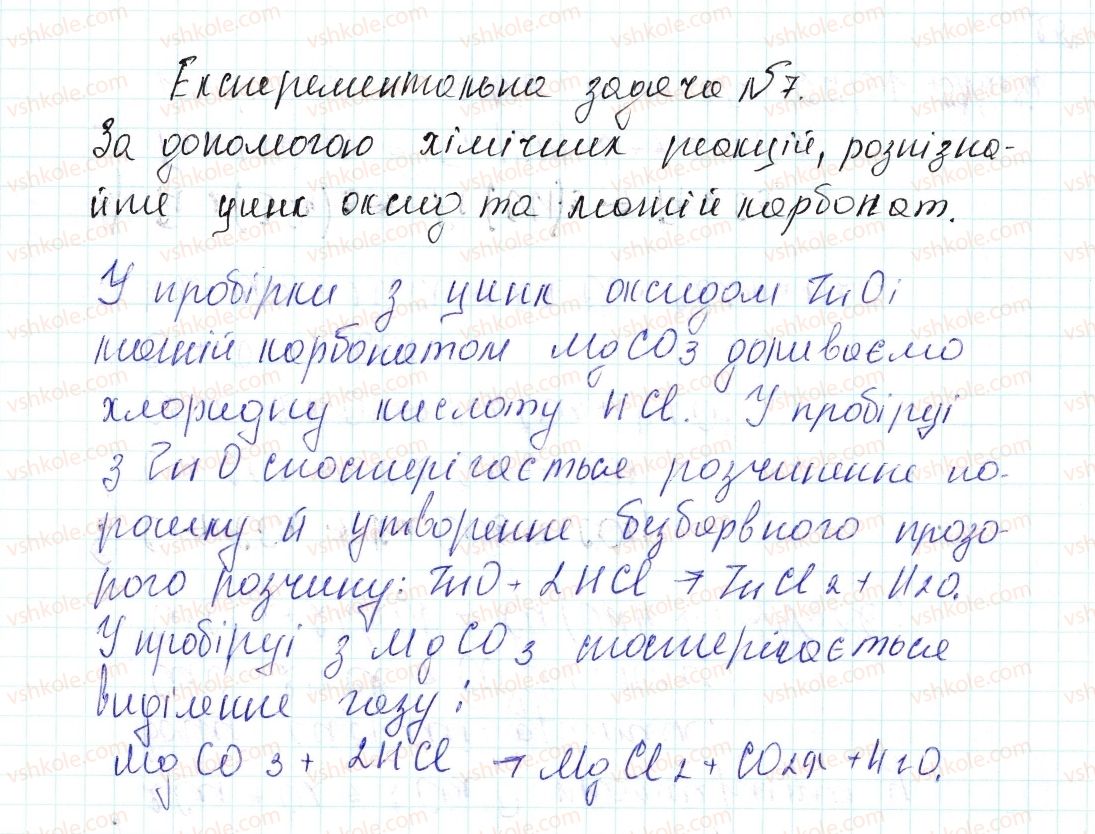 Експерементальна задача №7.
За допомогою хімічних реакцій, розпізна-
йте цинк оксид та магній карбонат.
У пробірки з цинк оксидом ZnO і
магній карбонатом MgCO3 доливаємо
хлоридну кислоту HCl. У пробірці
з ZnO спостерігається розчинення по-
рошку й утворення безбарвного прозо-
рого розчину: ZnO + 2HCl → ZnCl2 + H2O.
У пробірці з MgCO3 спостерігається
виділення газу:
MgCO3 + 2HCl → MgCl2 + CO2↑ + H2O.